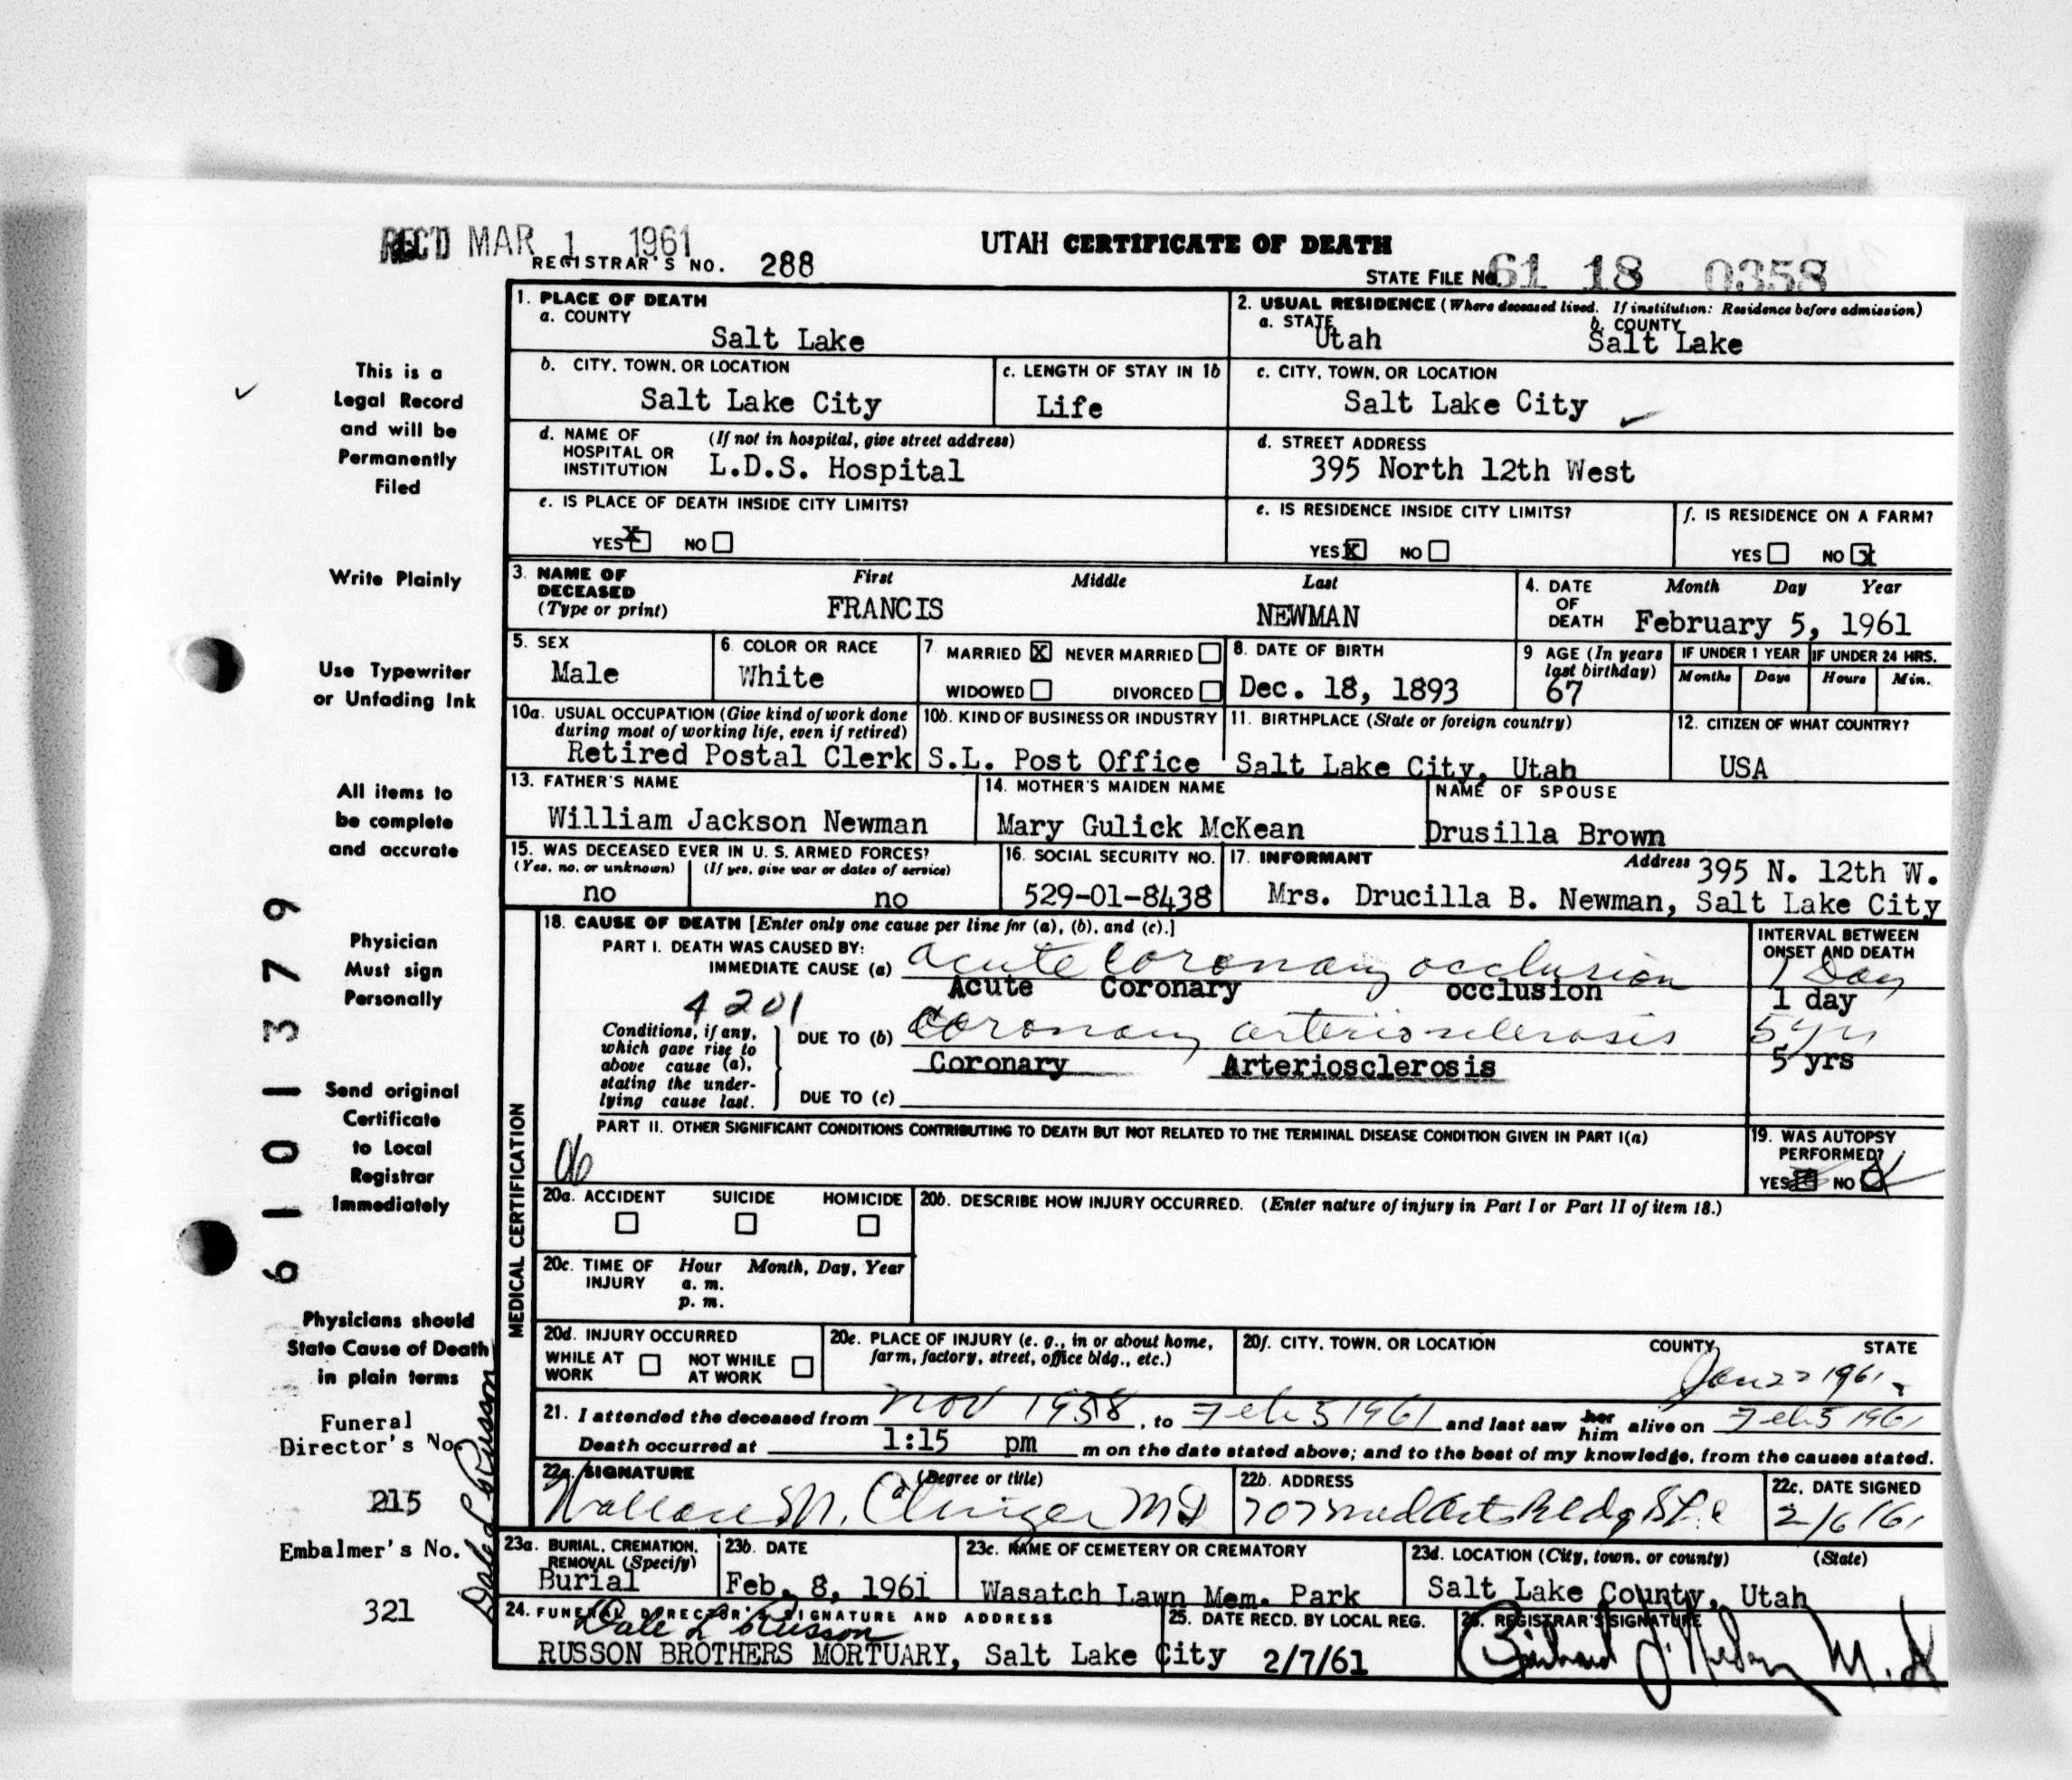 REC'D MAR 1 1961
REGISTRAR'S NO. 288
UTAH CERTIFICATE OF DEATH
STATE FILE NO. 61 18 0358
This is a
Legal Record
and will be
Permanently
Filed
Write Plainly
Use Typewriter
or Unfading Ink
All items to
be complete
and accurate
Physician
Must sign
Personally
Send original
Certificate
to Local
Registrar
Immediately
Physicians should
State Cause of Death
in plain terms
Funeral
Director's No.
215
Embalmer's No.
321
Dale L Russon
6101379
1. PLACE OF DEATH
a. COUNTY
Salt Lake
2. USUAL RESIDENCE (Where deceased lived. If institution: Residence before admission)
a. STATE b. COUNTY
Utah Salt Lake
b. CITY, TOWN, OR LOCATION
Salt Lake City
c. LENGTH OF STAY IN 1b
Life
c. CITY, TOWN, OR LOCATION
Salt Lake City
d. NAME OF HOSPITAL OR INSTITUTION (If not in hospital, give street address)
L.D.S. Hospital
d. STREET ADDRESS
395 North 12th West
e. IS PLACE OF DEATH INSIDE CITY LIMITS?
YES X NO
e. IS RESIDENCE INSIDE CITY LIMITS?
YES X NO
f. IS RESIDENCE ON A FARM?
YES NO X
3. NAME OF DECEASED (Type or print) First Middle Last
FRANCIS NEWMAN
4. DATE OF DEATH Month Day Year
February 5, 1961
5. SEX
Male
6. COLOR OR RACE
White
7. MARRIED X NEVER MARRIED
WIDOWED DIVORCED
8. DATE OF BIRTH
Dec. 18, 1893
9 AGE (In years last birthday)
67
IF UNDER 1 YEAR IF UNDER 24 HRS.
Months Days Hours Min.
10a. USUAL OCCUPATION (Give kind of work done during most of working life, even if retired)
Retired Postal Clerk
10b. KIND OF BUSINESS OR INDUSTRY
S.L. Post Office
11. BIRTHPLACE (State or foreign country)
Salt Lake City, Utah
12. CITIZEN OF WHAT COUNTRY?
USA
13. FATHER'S NAME
William Jackson Newman
14. MOTHER'S MAIDEN NAME
Mary Gulick McKean
NAME OF SPOUSE
Drusilla Brown
15. WAS DECEASED EVER IN U. S. ARMED FORCES?
(Yes, no, or unknown) (If yes, give war or dates of service)
no no
16. SOCIAL SECURITY NO.
529-01-8438
17. INFORMANT Address 395 N. 12th W.
Mrs. Drucilla B. Newman, Salt Lake City
MEDICAL CERTIFICATION
18. CAUSE OF DEATH [Enter only one cause per line for (a), (b), and (c).]
PART I. DEATH WAS CAUSED BY:
IMMEDIATE CAUSE (a) acute coronary occlusion
Acute Coronary occlusion
INTERVAL BETWEEN ONSET AND DEATH
1 Day
1 day
4201
Conditions, if any, which gave rise to above cause (a), stating the underlying cause last.
DUE TO (b) coronary arteriosclerosis
Coronary Arteriosclerosis
5 yrs
5 yrs
DUE TO (c)
PART II. OTHER SIGNIFICANT CONDITIONS CONTRIBUTING TO DEATH BUT NOT RELATED TO THE TERMINAL DISEASE CONDITION GIVEN IN PART I(a)
19. WAS AUTOPSY PERFORMED?
YES NO
20a. ACCIDENT SUICIDE HOMICIDE
20b. DESCRIBE HOW INJURY OCCURRED. (Enter nature of injury in Part I or Part II of item 18.)
20c. TIME OF INJURY Hour Month, Day, Year
a. m.
p. m.
20d. INJURY OCCURRED
WHILE AT WORK NOT WHILE AT WORK
20e. PLACE OF INJURY (e. g., in or about home, farm, factory, street, office bldg., etc.)
20f. CITY, TOWN, OR LOCATION COUNTY STATE
Jan 22 1961
21. I attended the deceased from Nov 1958, to Feb 5 1961 and last saw her him alive on Feb 5 1961
Death occurred at 1:15 pm m on the date stated above; and to the best of my knowledge, from the causes stated.
22a. SIGNATURE (Degree or title)
Wallace M. Clinger MD
22b. ADDRESS
707 Med Arts Bldg SLC
22c. DATE SIGNED
2/6/61
23a. BURIAL, CREMATION, REMOVAL (Specify)
Burial
23b. DATE
Feb. 8, 1961
23c. NAME OF CEMETERY OR CREMATORY
Wasatch Lawn Mem. Park
23d. LOCATION (City, town, or county) (State)
Salt Lake County, Utah
24. FUNERAL DIRECTOR'S SIGNATURE AND ADDRESS
Dale L Russon
RUSSON BROTHERS MORTUARY, Salt Lake City
25. DATE RECD. BY LOCAL REG.
2/7/61
26. REGISTRAR'S SIGNATURE
M.D.